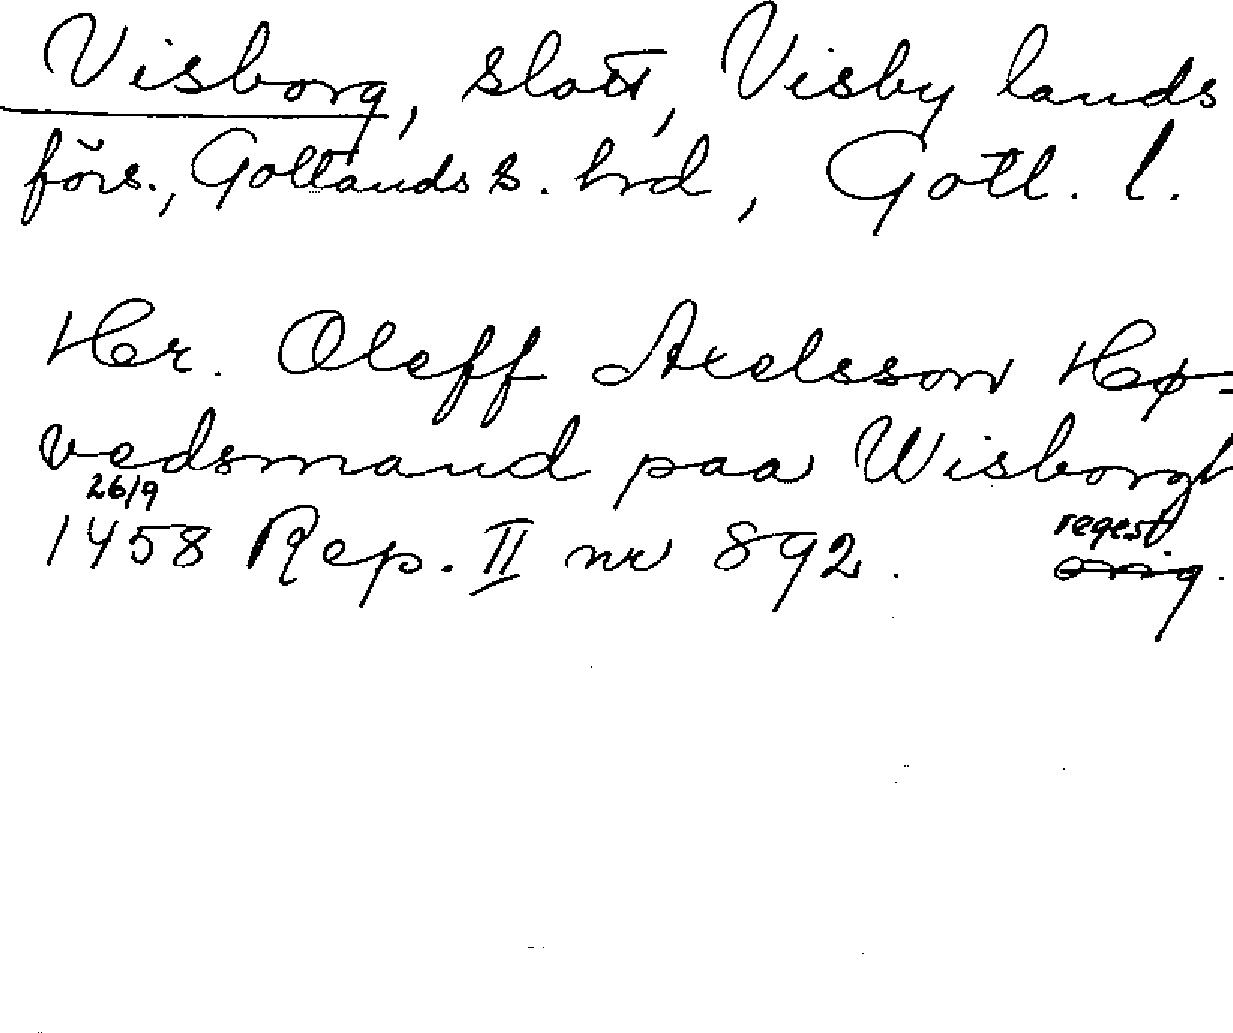 Visborg, slott, Visby lands
förs., Gotlands s. hrd, Gotl. l.
Hr. Oleff Axelsson Hø-
vedsmand paa Wisborgh
26/9
1458 Rep. II nr 892. regest.
orig.